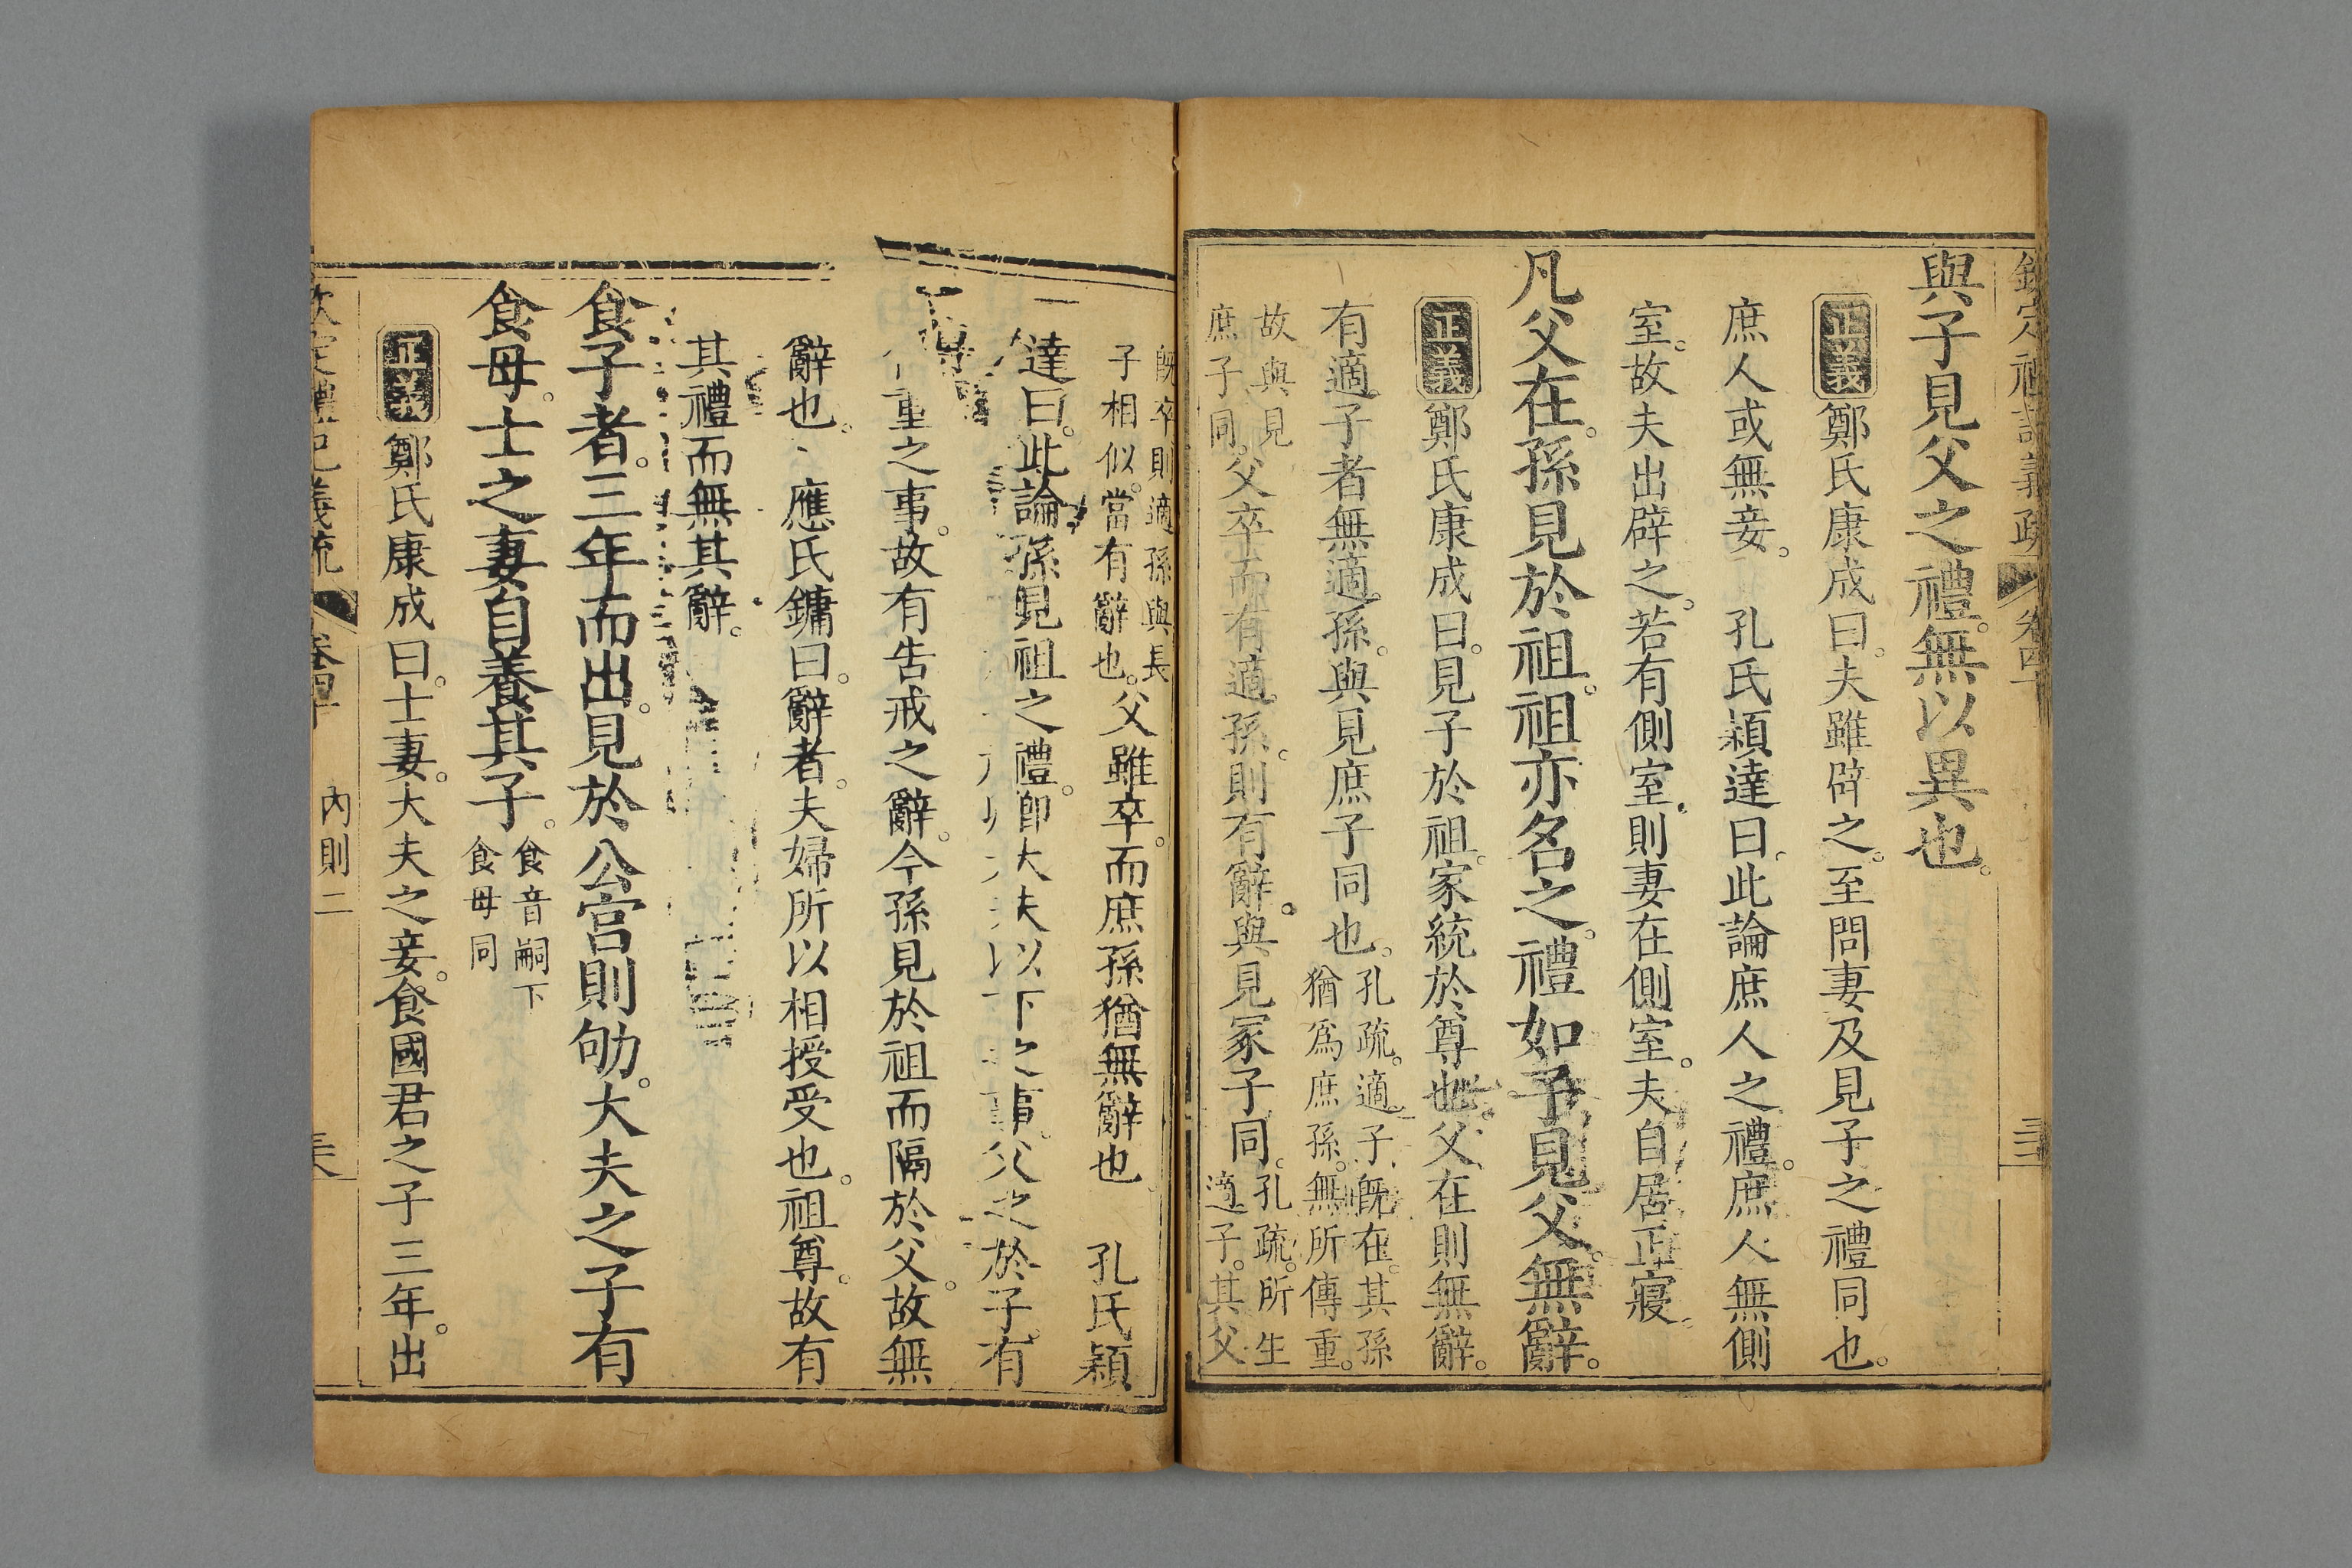 欽定禮記義疏 卷四十
與子見父之禮無以異也
正義 鄭氏康成曰夫雖辟之至問妻及見子之禮同也
庶人或無妾 孔氏穎達曰此論庶人之禮庶人無側
室故夫出辟之若有側室則妻在側室夫自居正寢
凡父在孫見於祖祖亦名之禮如子見父無辭
正義 鄭氏康成曰見子於祖家統於尊也父在則無辭
有適子者無適孫與見庶子同也
孔疏適子既在其孫
猶爲庶孫無所傳重
故與見
庶子同
父卒而有適孫則有辭與見冢子同
孔疏所生
適子其父
既卒則適孫與長
子相似當有辭也
父雖卒而庶孫猶無辭也 孔氏穎
達曰此論孫見祖之禮卽大夫以下之事父之於子有
重之事故有告戒之辭今孫見於祖而隔於父故無
辭也 應氏鏞曰辭者夫婦所以相授受也祖尊故有
其禮而無其辭
食子者三年而出見於公宮則劬大夫之子有
食母士之妻自養其子
食音嗣下
食母同
正義 鄭氏康成曰士妻大夫之妾食國君之子三年出
欽定禮記義疏 卷四十 內則二